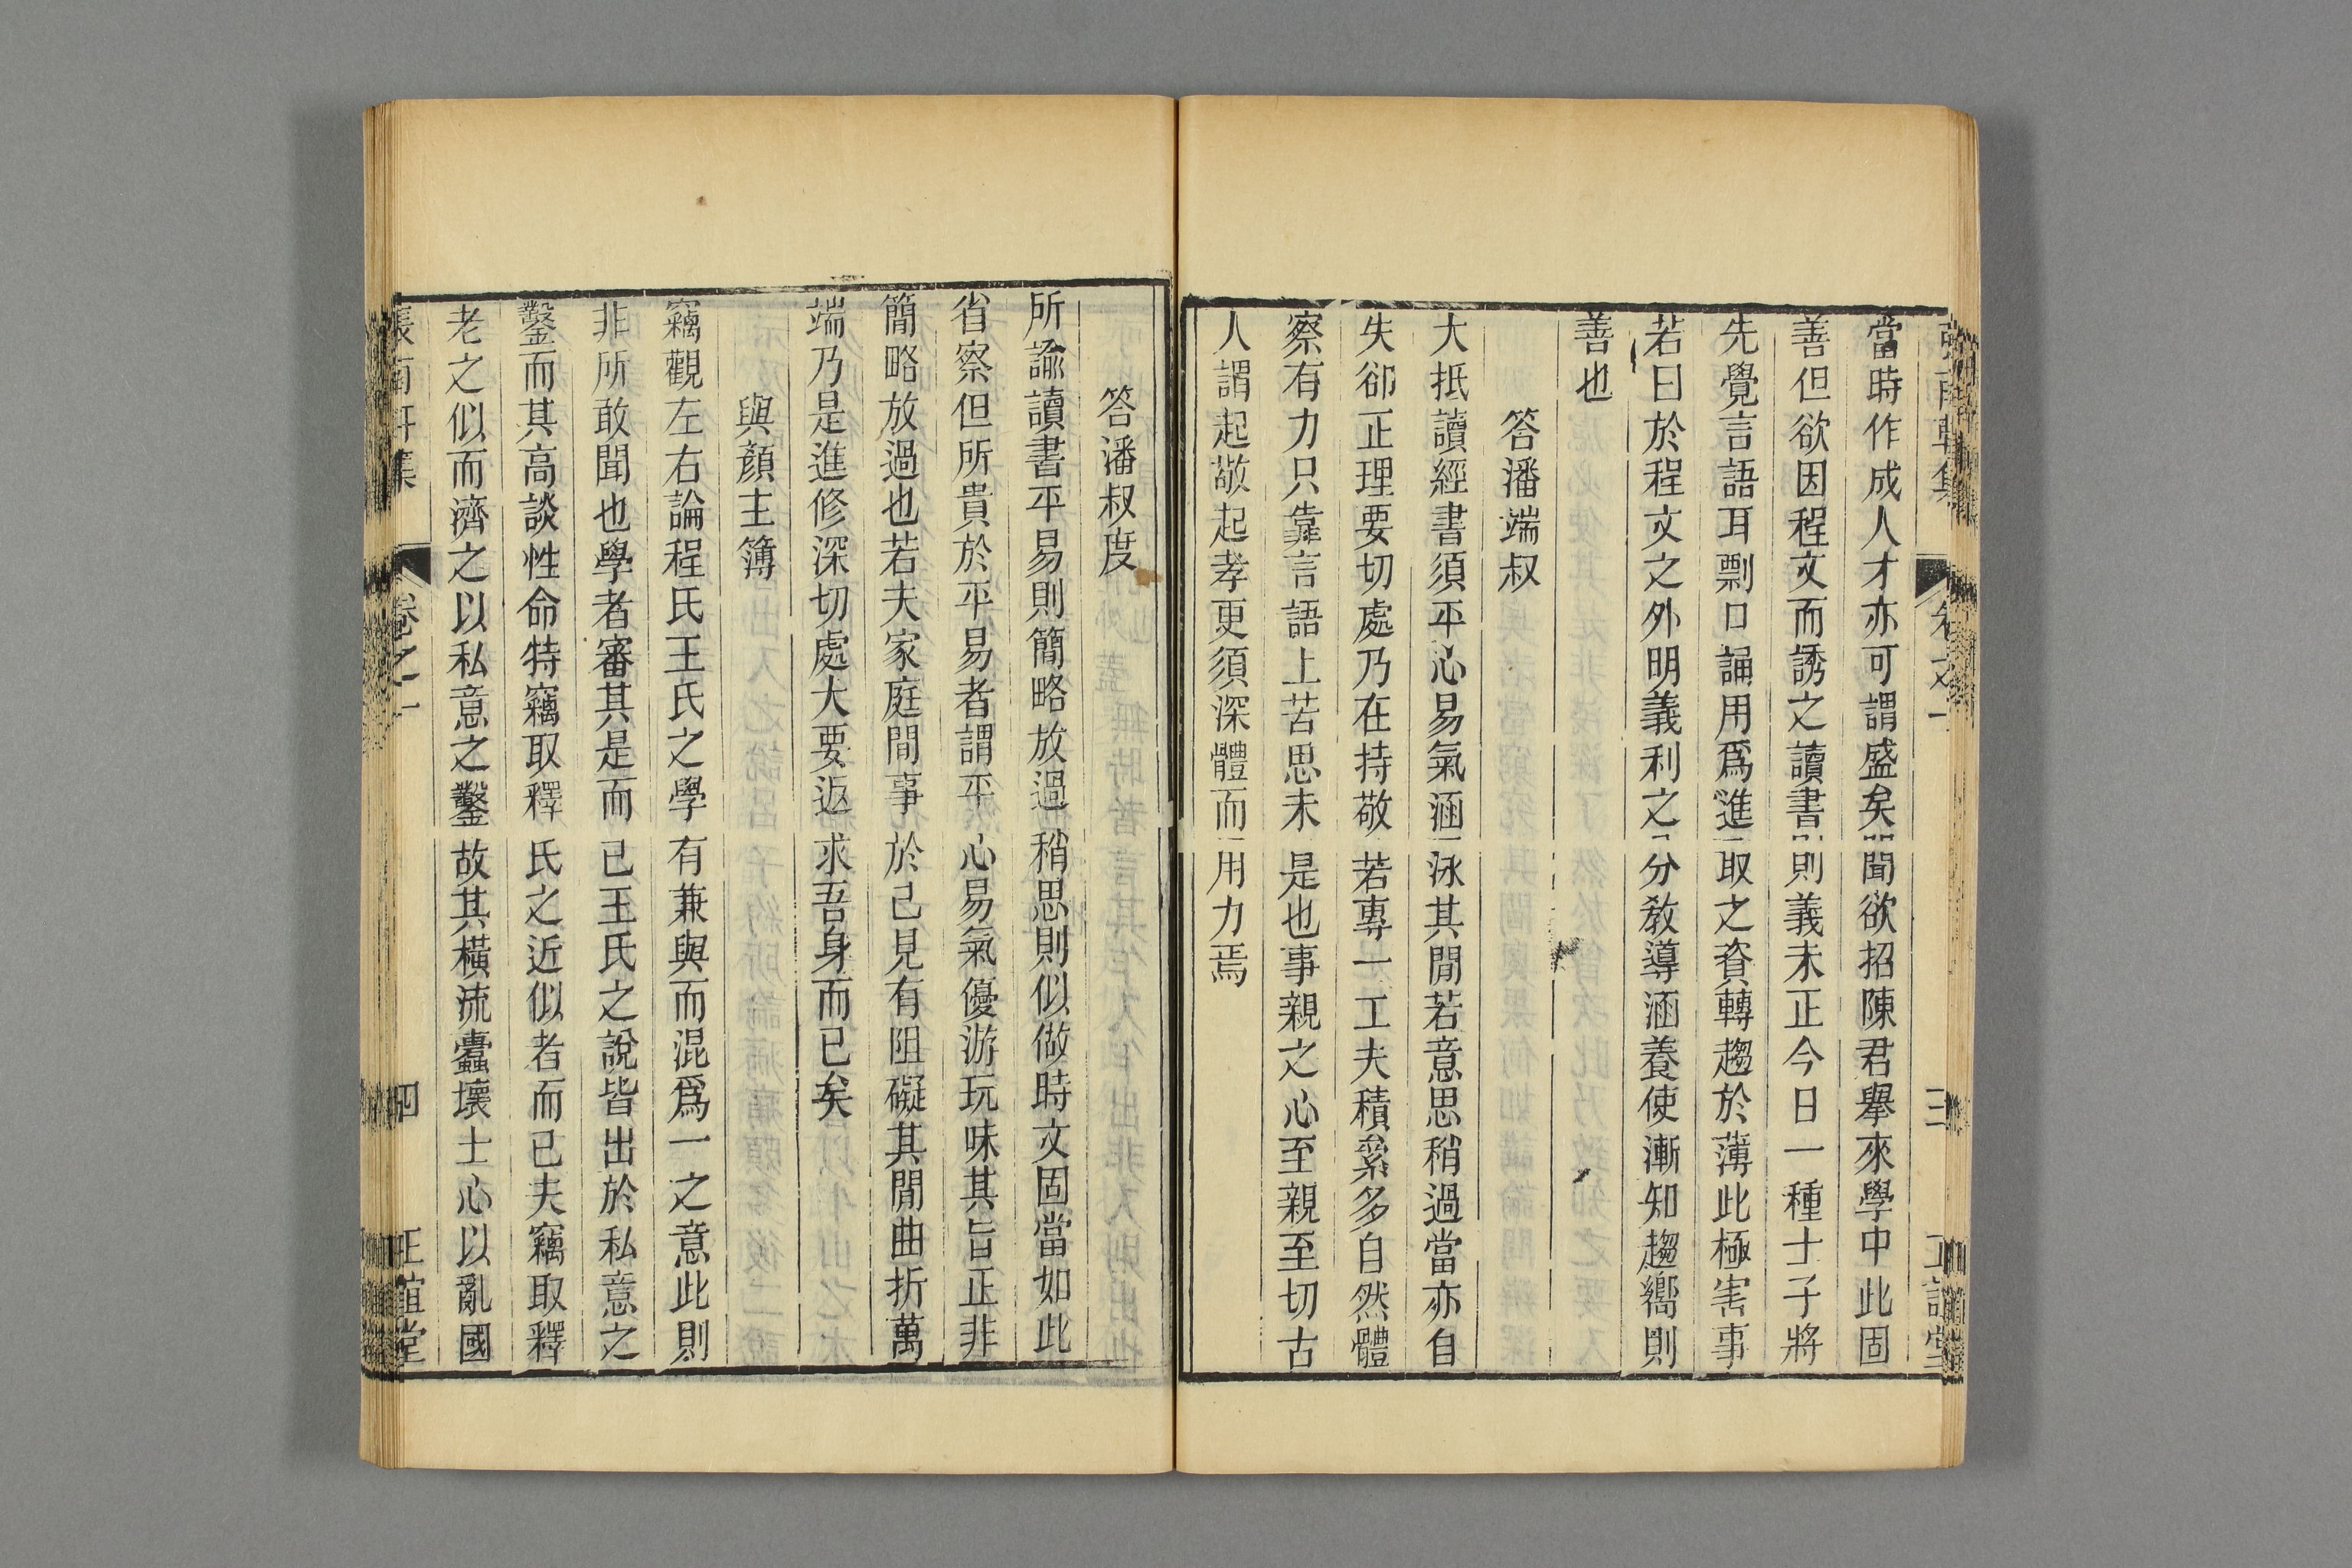 當時作成人才亦可謂盛矣聞欲招陳君舉來學中此固
善但欲因程文而誘之讀書則義未正今日一種士子將
先覺言語耳剽口誦用爲進取之資轉趨於薄此極害事
若曰於程文之外明義利之分教導涵養使漸知趨嚮則
善也
答潘端叔
大抵讀經書須平心易氣涵泳其閒若意思稍過當亦自
失卻正理要切處乃在持敬若專一工夫積累多自然體
察有力只靠言語上苦思未是也事親之心至親至切古
人謂起敬起孝更須深體而用力焉
答潘叔度
所諭讀書平易則簡略放過稍思則似做時文固當如此
省察但所貴於平易者謂平心易氣優游玩味其旨正非
簡略放過也若夫家庭閒事於己見有阻礙其閒曲折萬
端乃是進修深切處大要返求吾身而已矣
與顏主簿
竊觀左右論程氏王氏之學有兼與而混爲一之意此則
非所敢聞也學者審其是而已王氏之說皆出於私意之
鑿而其高談性命特竊取釋氏之近似者而已夫竊取釋
老之似而濟之以私意之鑿故其橫流蠹壞士心以亂國
張南軒集 卷之一 四 正誼堂